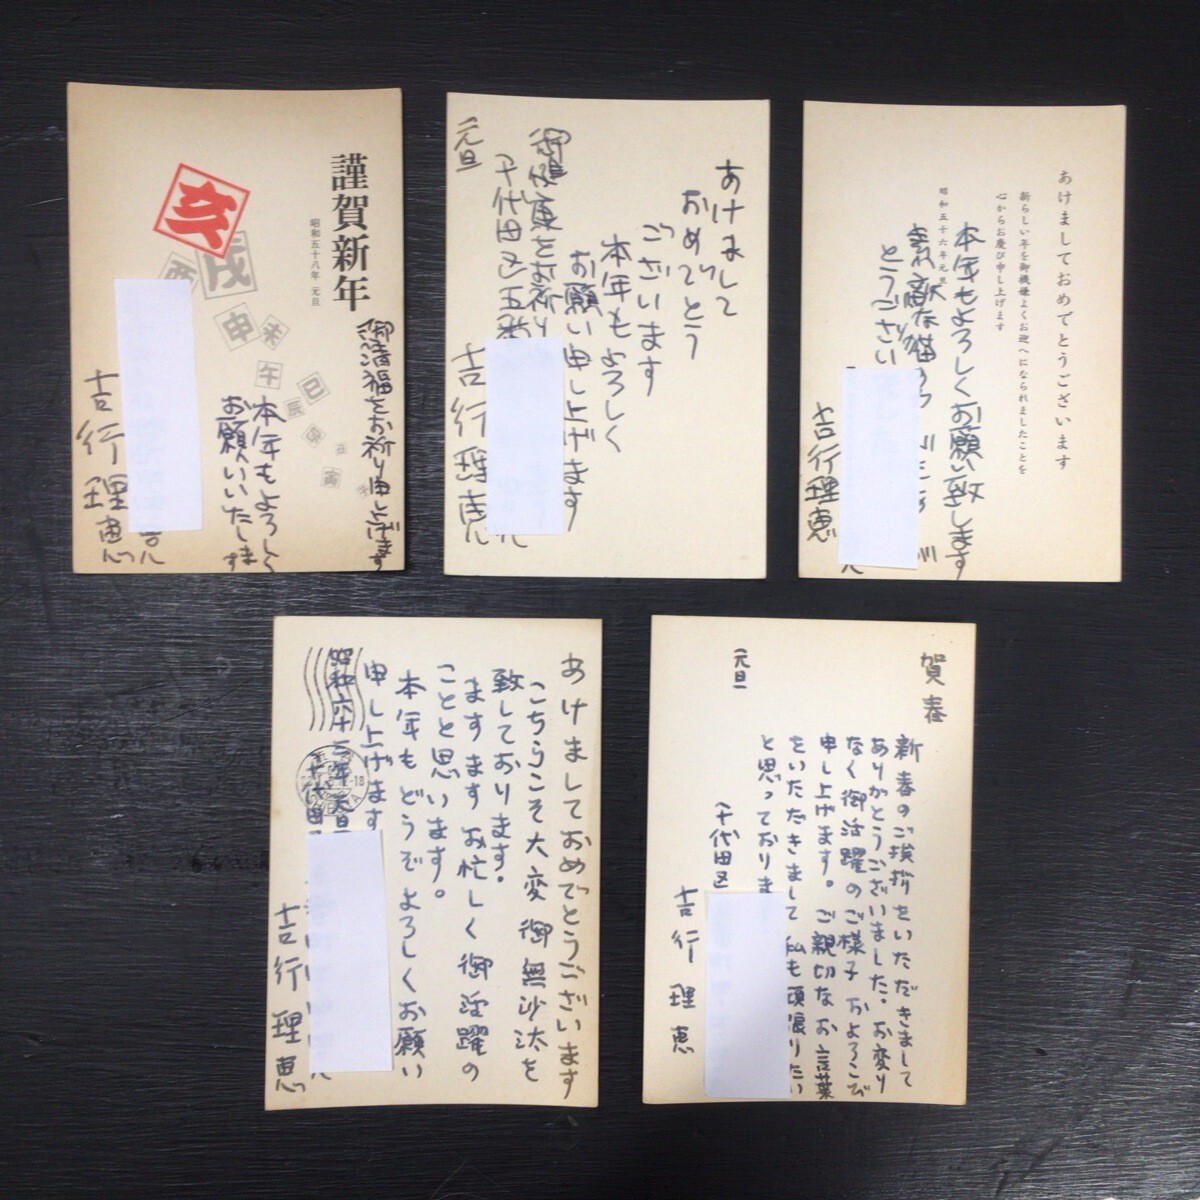 謹賀新年
昭和五十八年 元旦
亥
戌
酉
申
未
午
巳
辰
寅
丑
御清福をお祈り申し上げます
本年もよろしく
お願いいたします
吉行理恵
あけまして
おめでとう
ございます
本年もよろしく
お願い申し上げます
御健康をお祈り
千代田区五番
元旦
吉行理恵
あけましておめでとうございます
新らしい年を御機嫌よくお迎へになられましたことを
心からお慶び申し上げます
昭和五十六年元旦
本年もよろしくお願い致します
素敵な猫の
とうござい
吉行理恵
あけましておめでとうございます
こちらこそ大変御無沙汰を
致しております。
ますますお忙しく御活躍の
ことと思います。
本年もどうぞよろしくお願い
申し上げます
昭和六十二年元旦
千代田
吉行理恵
賀春
新春のご挨拶をいただきまして
ありがとうございました。お変り
なく御活躍のご様子およろこび
申し上げます。ご親切なお言葉
をいただきまして私も頑張りたい
と思っておりま
元旦
千代田区
吉行理恵